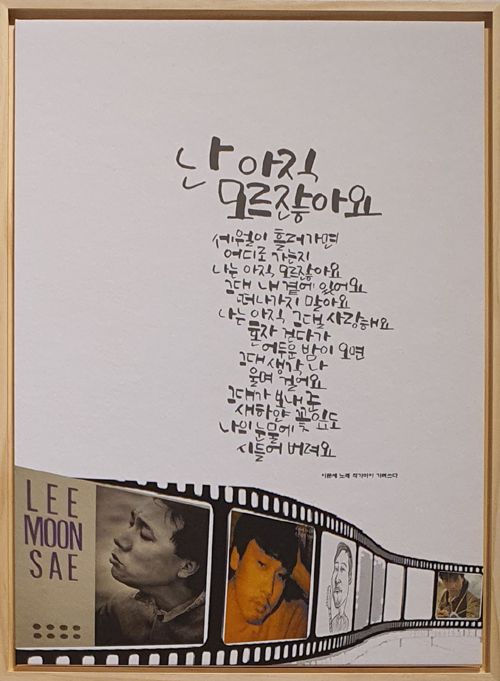 난 아직
모르잖아요
세월이 흘러가면
어디로 가는지
나는 아직 모르잖아요
그대 내 곁에 있어요
떠나가지 말아요
나는 아직 그대 사랑해요
혼자 걷다가
어두운 밤이 오면
그대 생각 나
울며 걸어요
그대가 보내준
새하얀 꽃잎도
나의 눈물에
시들어 버려요
이문세 노래
LEE
MOON
SAE